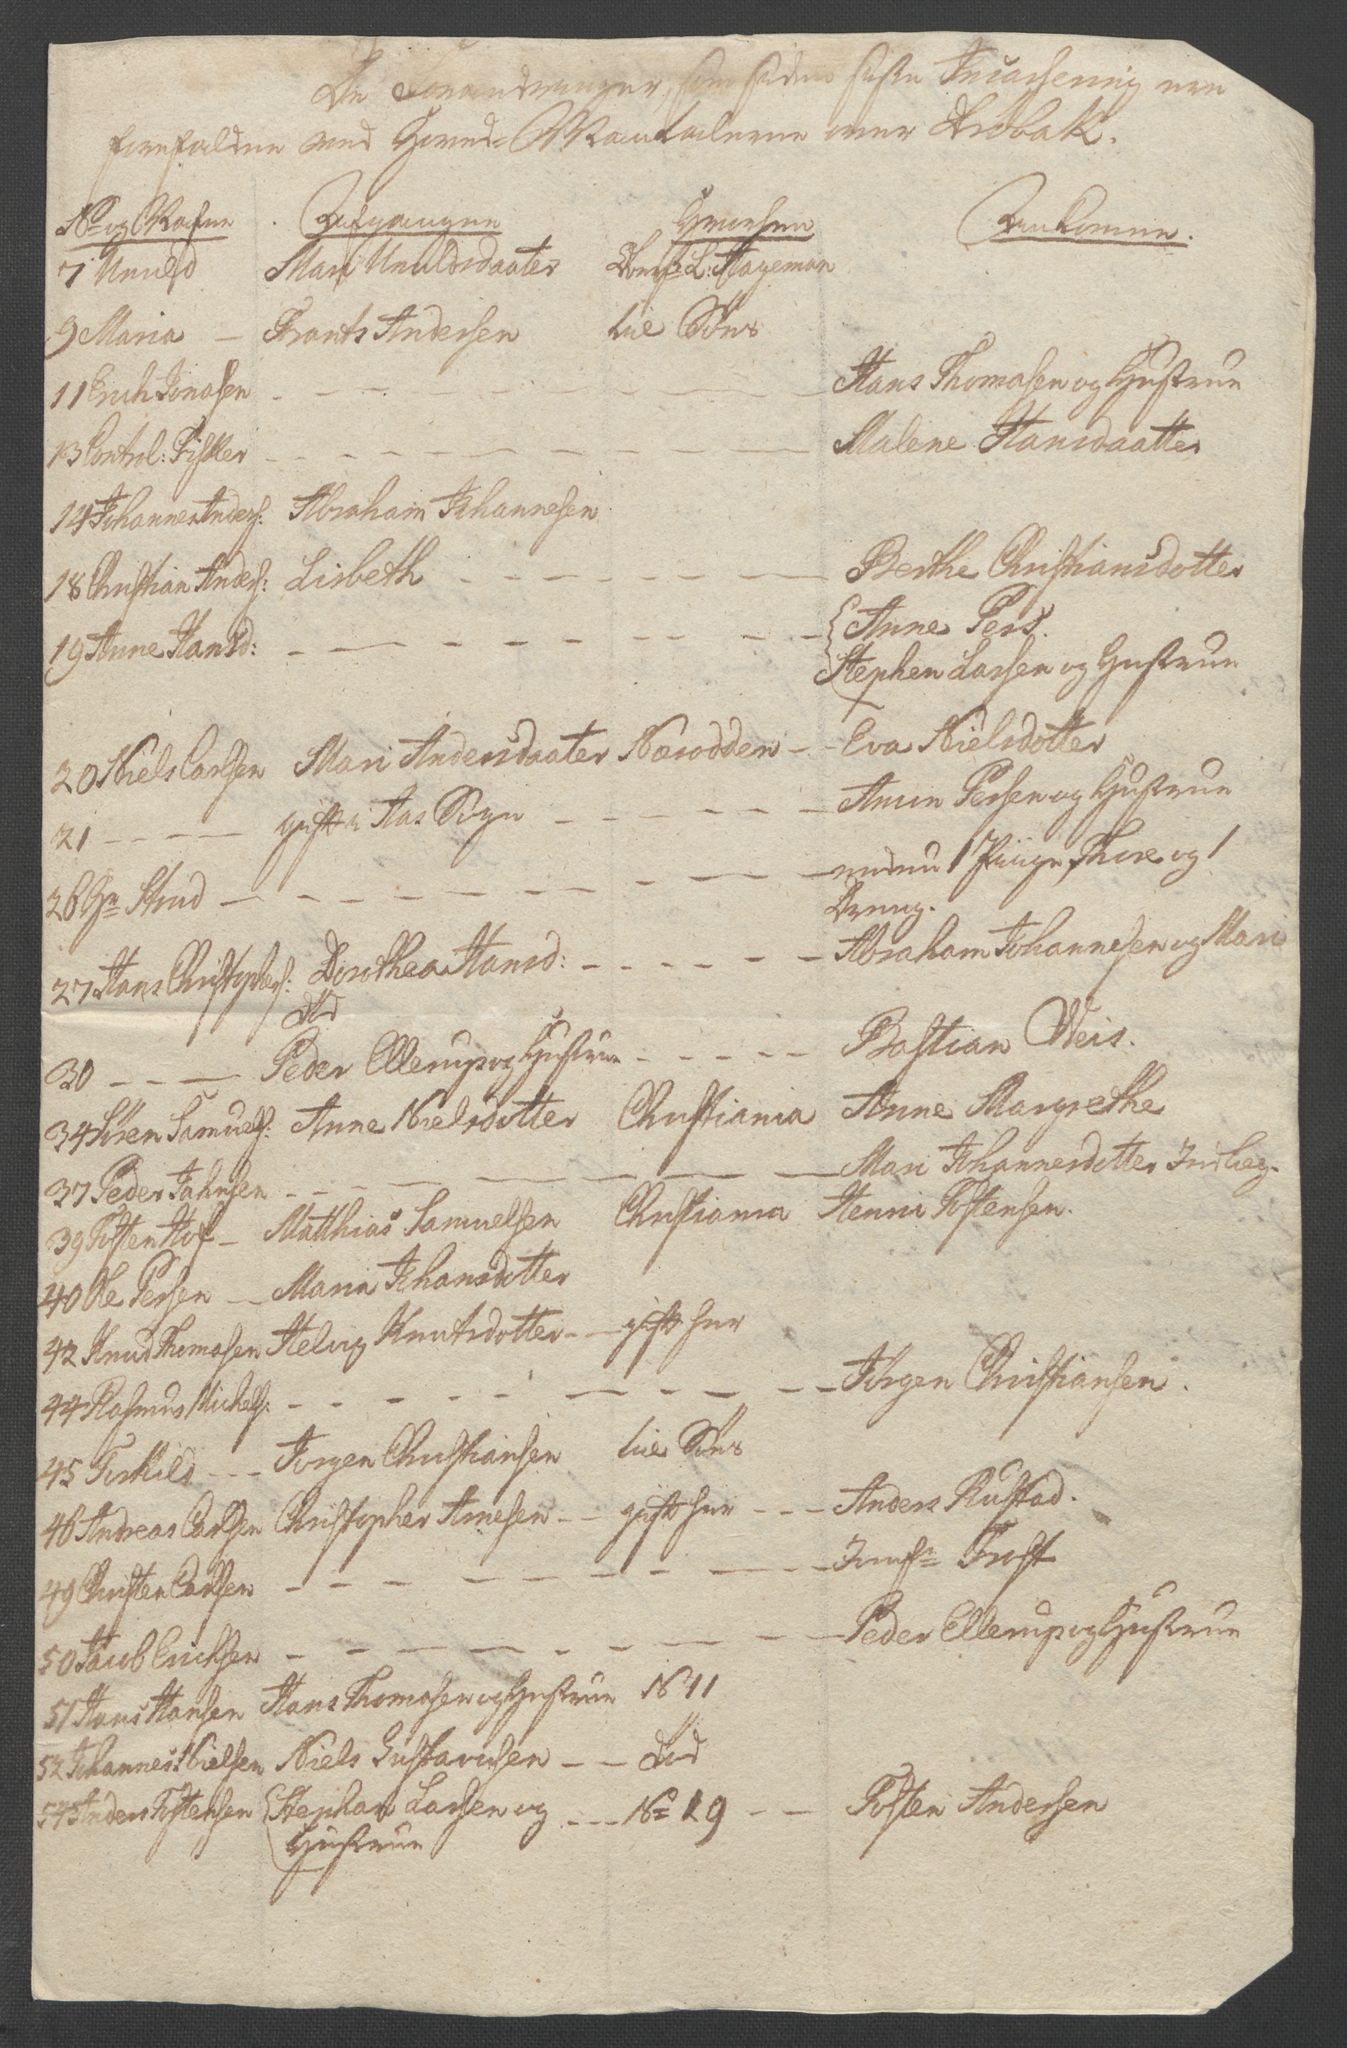 De Forandringer, som siden sidste Incassering ere
forefaldne ved Hoved-Mantalerne over Drøbak.
No og Nafne Aufgangne Hvorhen Ankomne.
7 Knud Mari Knudsdaater L: Stageman
9 Maria — Frants Andersen til Søes
11 Erich Jonasen - - - - - Hans Thomasen og Hustrue
13 Control: Fisker - - - - - Malene Hansdaatter
14 Johannes Anders: Abraham Johannesen
18 Christian Anders: Lisbeth - - - - - Berthe Christiansdotter
19 Anne Hansd: - - - - - { Anne Pers.
Stephen Larsen og Hustrue
20 Niels Carlsen Mari Andersdaater Næsodden - - Eva Nielsdotter
21 - - - - gift i Aas Sogn - - - - - Persen og Hustrue
26 Hr - - - - - 1 Piige, Thore og 1
Dreng.
27 Hans Christophers: Dorothea Hansd: - - - - - Abraham Johannesen og Mari
død
30 - - - Peder Ellerup og Hustrue - - - - - Bastian Weis.
34 Sören Samuels: Anne Nielsdotter Christiania Anne Margrethe
37 Peder Jahnsen - - - - - Mari Johannesdotter
39 Tosten Hof - Matthias Samuelsen Christiania Henni Tostensen.
40 Ole Persen - - Maria Johansdotter
42 Knud Thomasen Helvig Knutsdotter - - gift her
44 Rasmus Michels: - - - - - Jörgen Christiansen.
45 Terkild - - - Jorgen Christiansen til Søes
46 Andreas Carlsen Christopher Arnesen - - gift her - - - Anders Rustad.
49 Christen Carlsen - - - - - Jomfr Frost
50 Jacob Erichsen - - - - - Peder Ellerup og Hustrue
51 Hans Hansen Hans Thomasen og Hustrue No 11
52 Johannes Nielsen Niels Gustavusen - - Död
54 Anders Tostensen { Stephan Larsen og - - - No 19 - - Tosten Andersen
Hustrue